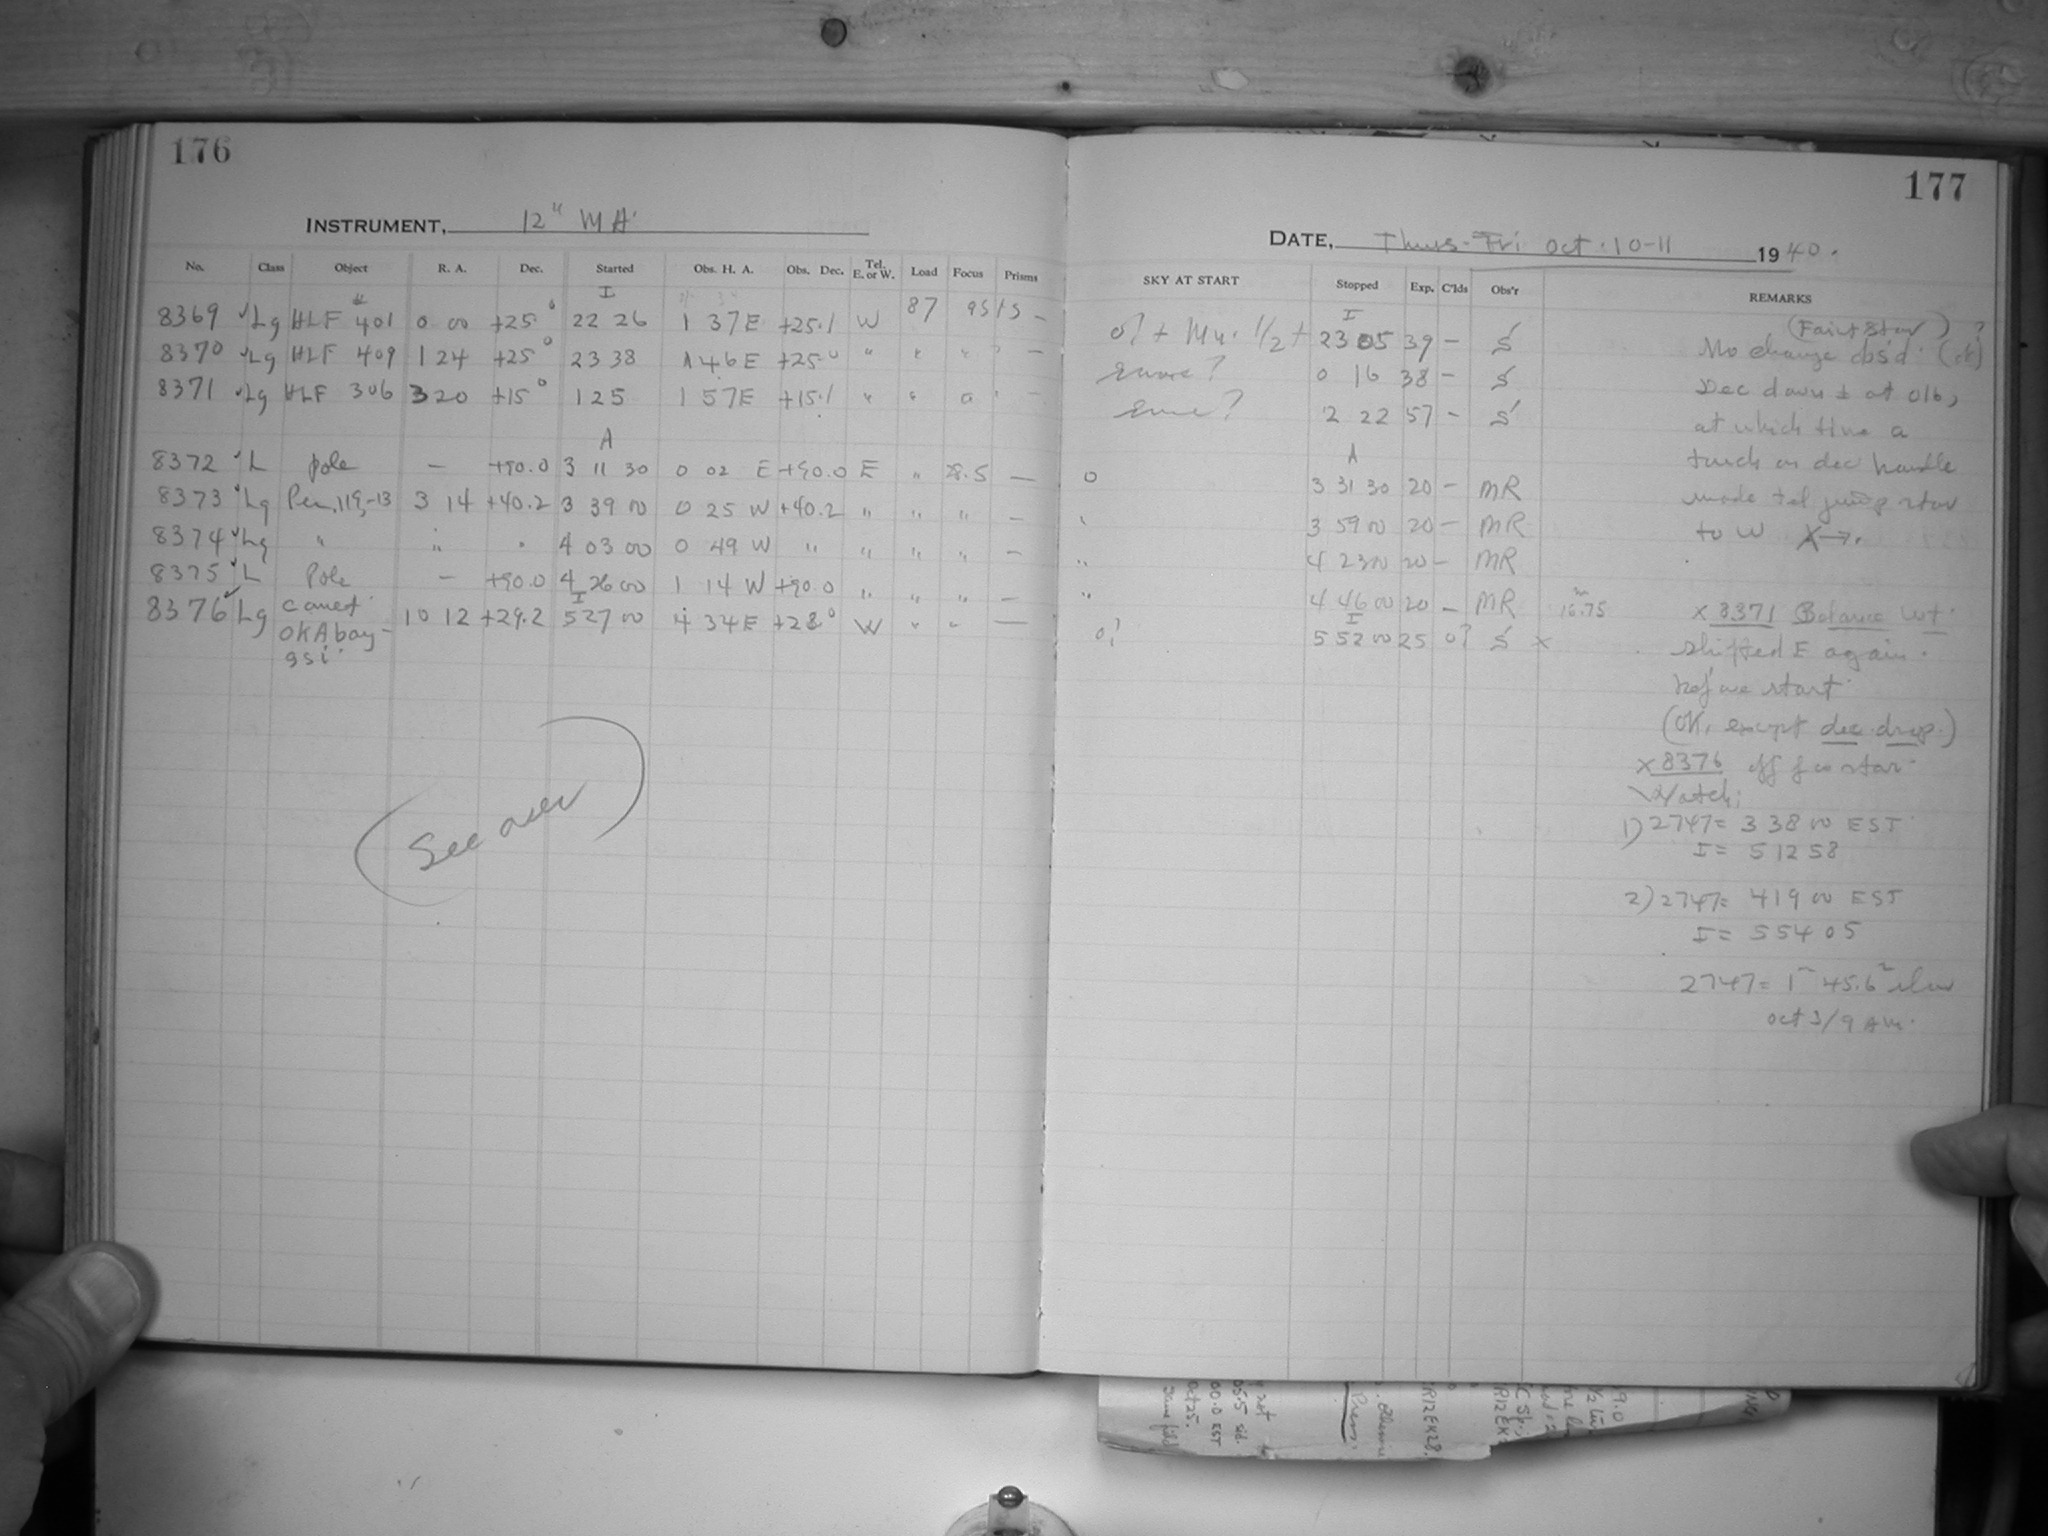 176
INSTRUMENT, 12" MA
No. Class Object R. A. Dec. Started Obs. H. A. Obs. Dec. Tel. E. or W. Load Focus Prisms
I
8369 ✓ Lg HLF 401 0 00 +25° 22 26 1 37E +25.1 W 87 –
8370 ✓ Lg HLF 409 1 24 +25° 23 38 1 46 E +25.0 " " " –
8371 ✓ Lg HLF 306 3 20 +15° 1 25 1 57E +15.1 " " –
A
8372 ✓ L pole – +90.0 3 11 30 0 02 E +90.0 E " 28.5 –
8373 ✓ Lg Per. 119,-13 3 14 +40.2 3 39 00 0 25 W +40.2 " " " –
8374 ✓ Lg " " " 4 03 00 0 49 W " " " " –
8375 ✓ L Pole – +90.0 4 26 00 1 14 W +90.0 " " " –
I
8376 ✓ Lg comet 10 12 +29.2 5 27 00 4 34E +28° W " " –
OKAbay-
asi
(See over)
177
DATE, Thurs-Fri Oct. 10-11 1940.
SKY AT START Stopped Exp. C'lds Obs'r REMARKS
I
1/2 + 23 05 39 – S
same? 0 16 38 – S
same? 2 22 57 – S
A
0 3 31 30 20 – MR
3 59 00 20 – MR
" 4 23 00 20 – MR
" 4 46 00 20 – MR 16.75
I
0? 5 52 00 25 0? S ×
(Faint star)?
No change obs'd. (ok)
Dec down ± at 016,
at which time a
touch on dec handle
made tel jump star
to W X→.
× 8371 Balance wt.
shifted E again.
before start.
(OK, except dec. drop.)
× 8376 off fr star.
Watch:
1) 2747= 3 38 00 EST
I = 5 12 58
2) 2747= 4 19 00 EST
I = 5 54 05
2747= 1 45.6 slow
Oct 3/9 AM.